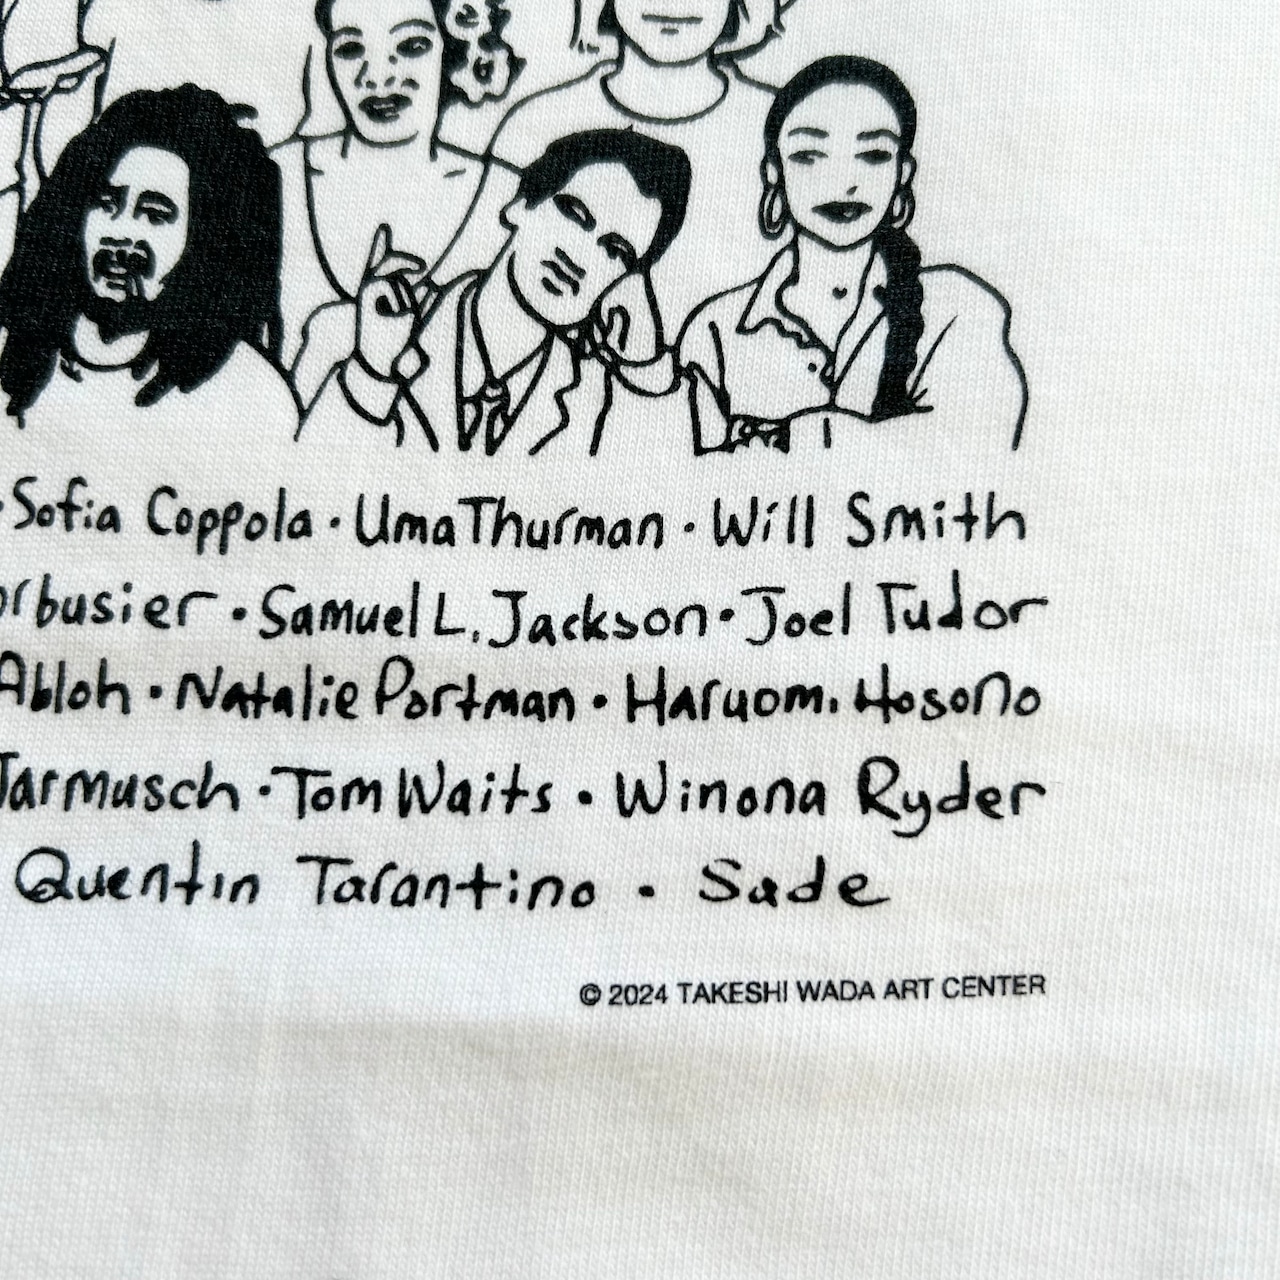 · Sofia Coppola · Uma Thurman · Will Smith
orbusier · Samuel L. Jackson · Joel Tudor
Abloh · Natalie Portman · Haruomi Hosono
Jarmusch · Tom Waits · Winona Ryder
Quentin Tarantino · Sade
© 2024 TAKESHI WADA ART CENTER